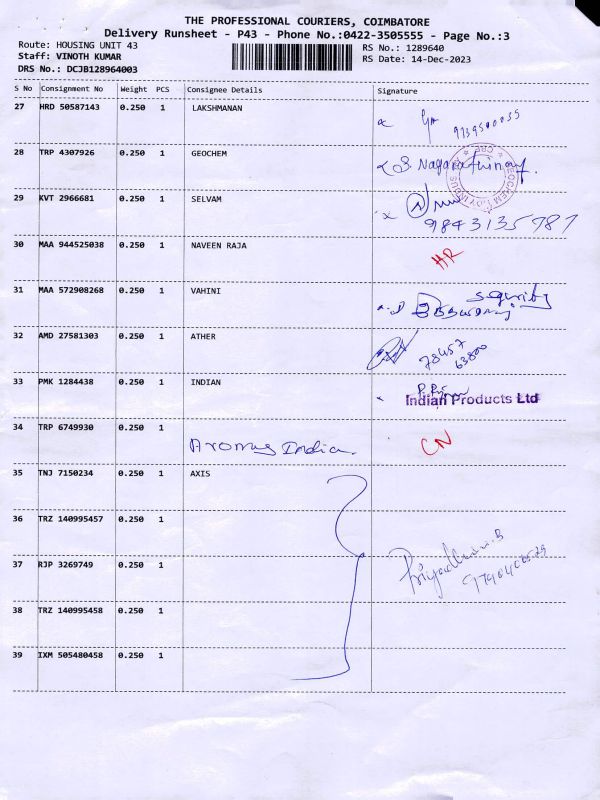 THE PROFESSIONAL COURIERS, COIMBATORE
Delivery Runsheet - P43 - Phone No.:0422-3505555 - Page No.:3
Route: HOUSING UNIT 43
RS No.: 1289640
Staff: VINOTH KUMAR
RS Date: 14-Dec-2023
DRS No.: DCJB128964003
S No Consignment No Weight PCS Consignee Details Signature
27 HRD 50587143 0.250 1 LAKSHMANAN
28 TRP 4307926 0.250 1 GEOCHEM
29 KVT 2966681 0.250 1 SELVAM
9843135787
30 MAA 944525038 0.250 1 NAVEEN RAJA
HR
31 MAA 572908268 0.250 1 VAHINI
32 AMD 27581303 0.250 1 ATHER
78457
63800
33 PMK 1284438 0.250 1 INDIAN
Indian Products Ltd
34 TRP 6749930 0.250 1
Aromas India.
CN
35 TNJ 7150234 0.250 1 AXIS
36 TRZ 140995457 0.250 1
37 RJP 3269749 0.250 1
38 TRZ 140995458 0.250 1
39 IXM 505480458 0.250 1